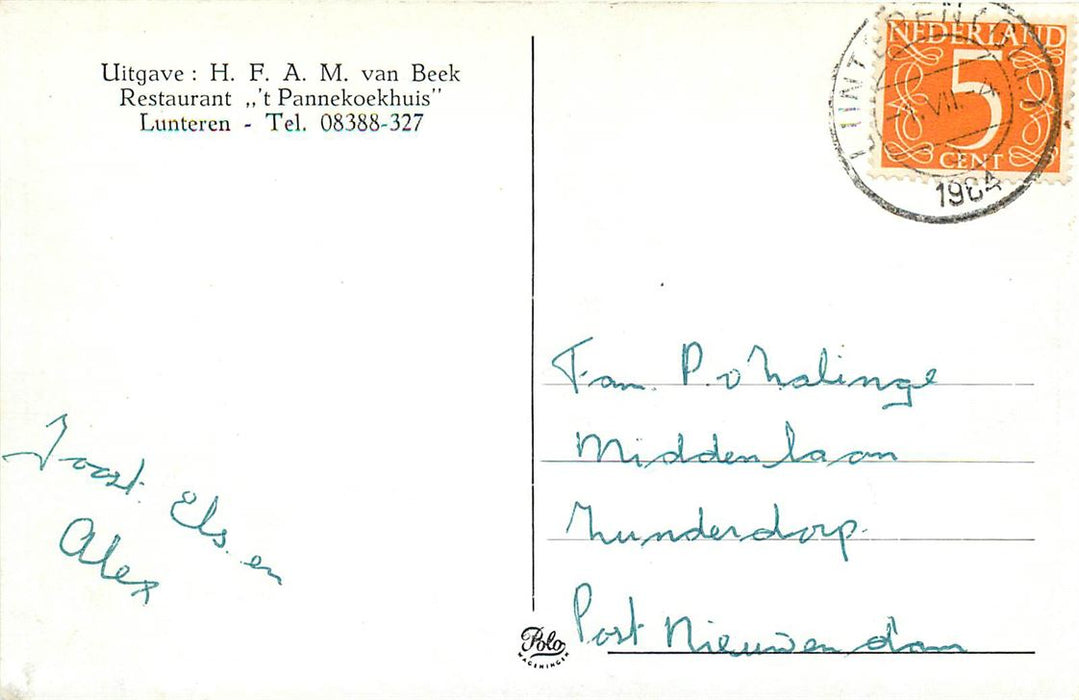 Uitgave : H. F. A. M. van Beek
Restaurant „'t Pannekoekhuis"
Lunteren - Tel. 08388-327
NEDERLAND
5
CENT
LUNTEREN (GLD)
VII
Joost. Els. en
Alex
Fam. P. v Halinge
Middenlaan
Zunderdorp.
Post Nieuwendam
Polo
WAGENINGEN